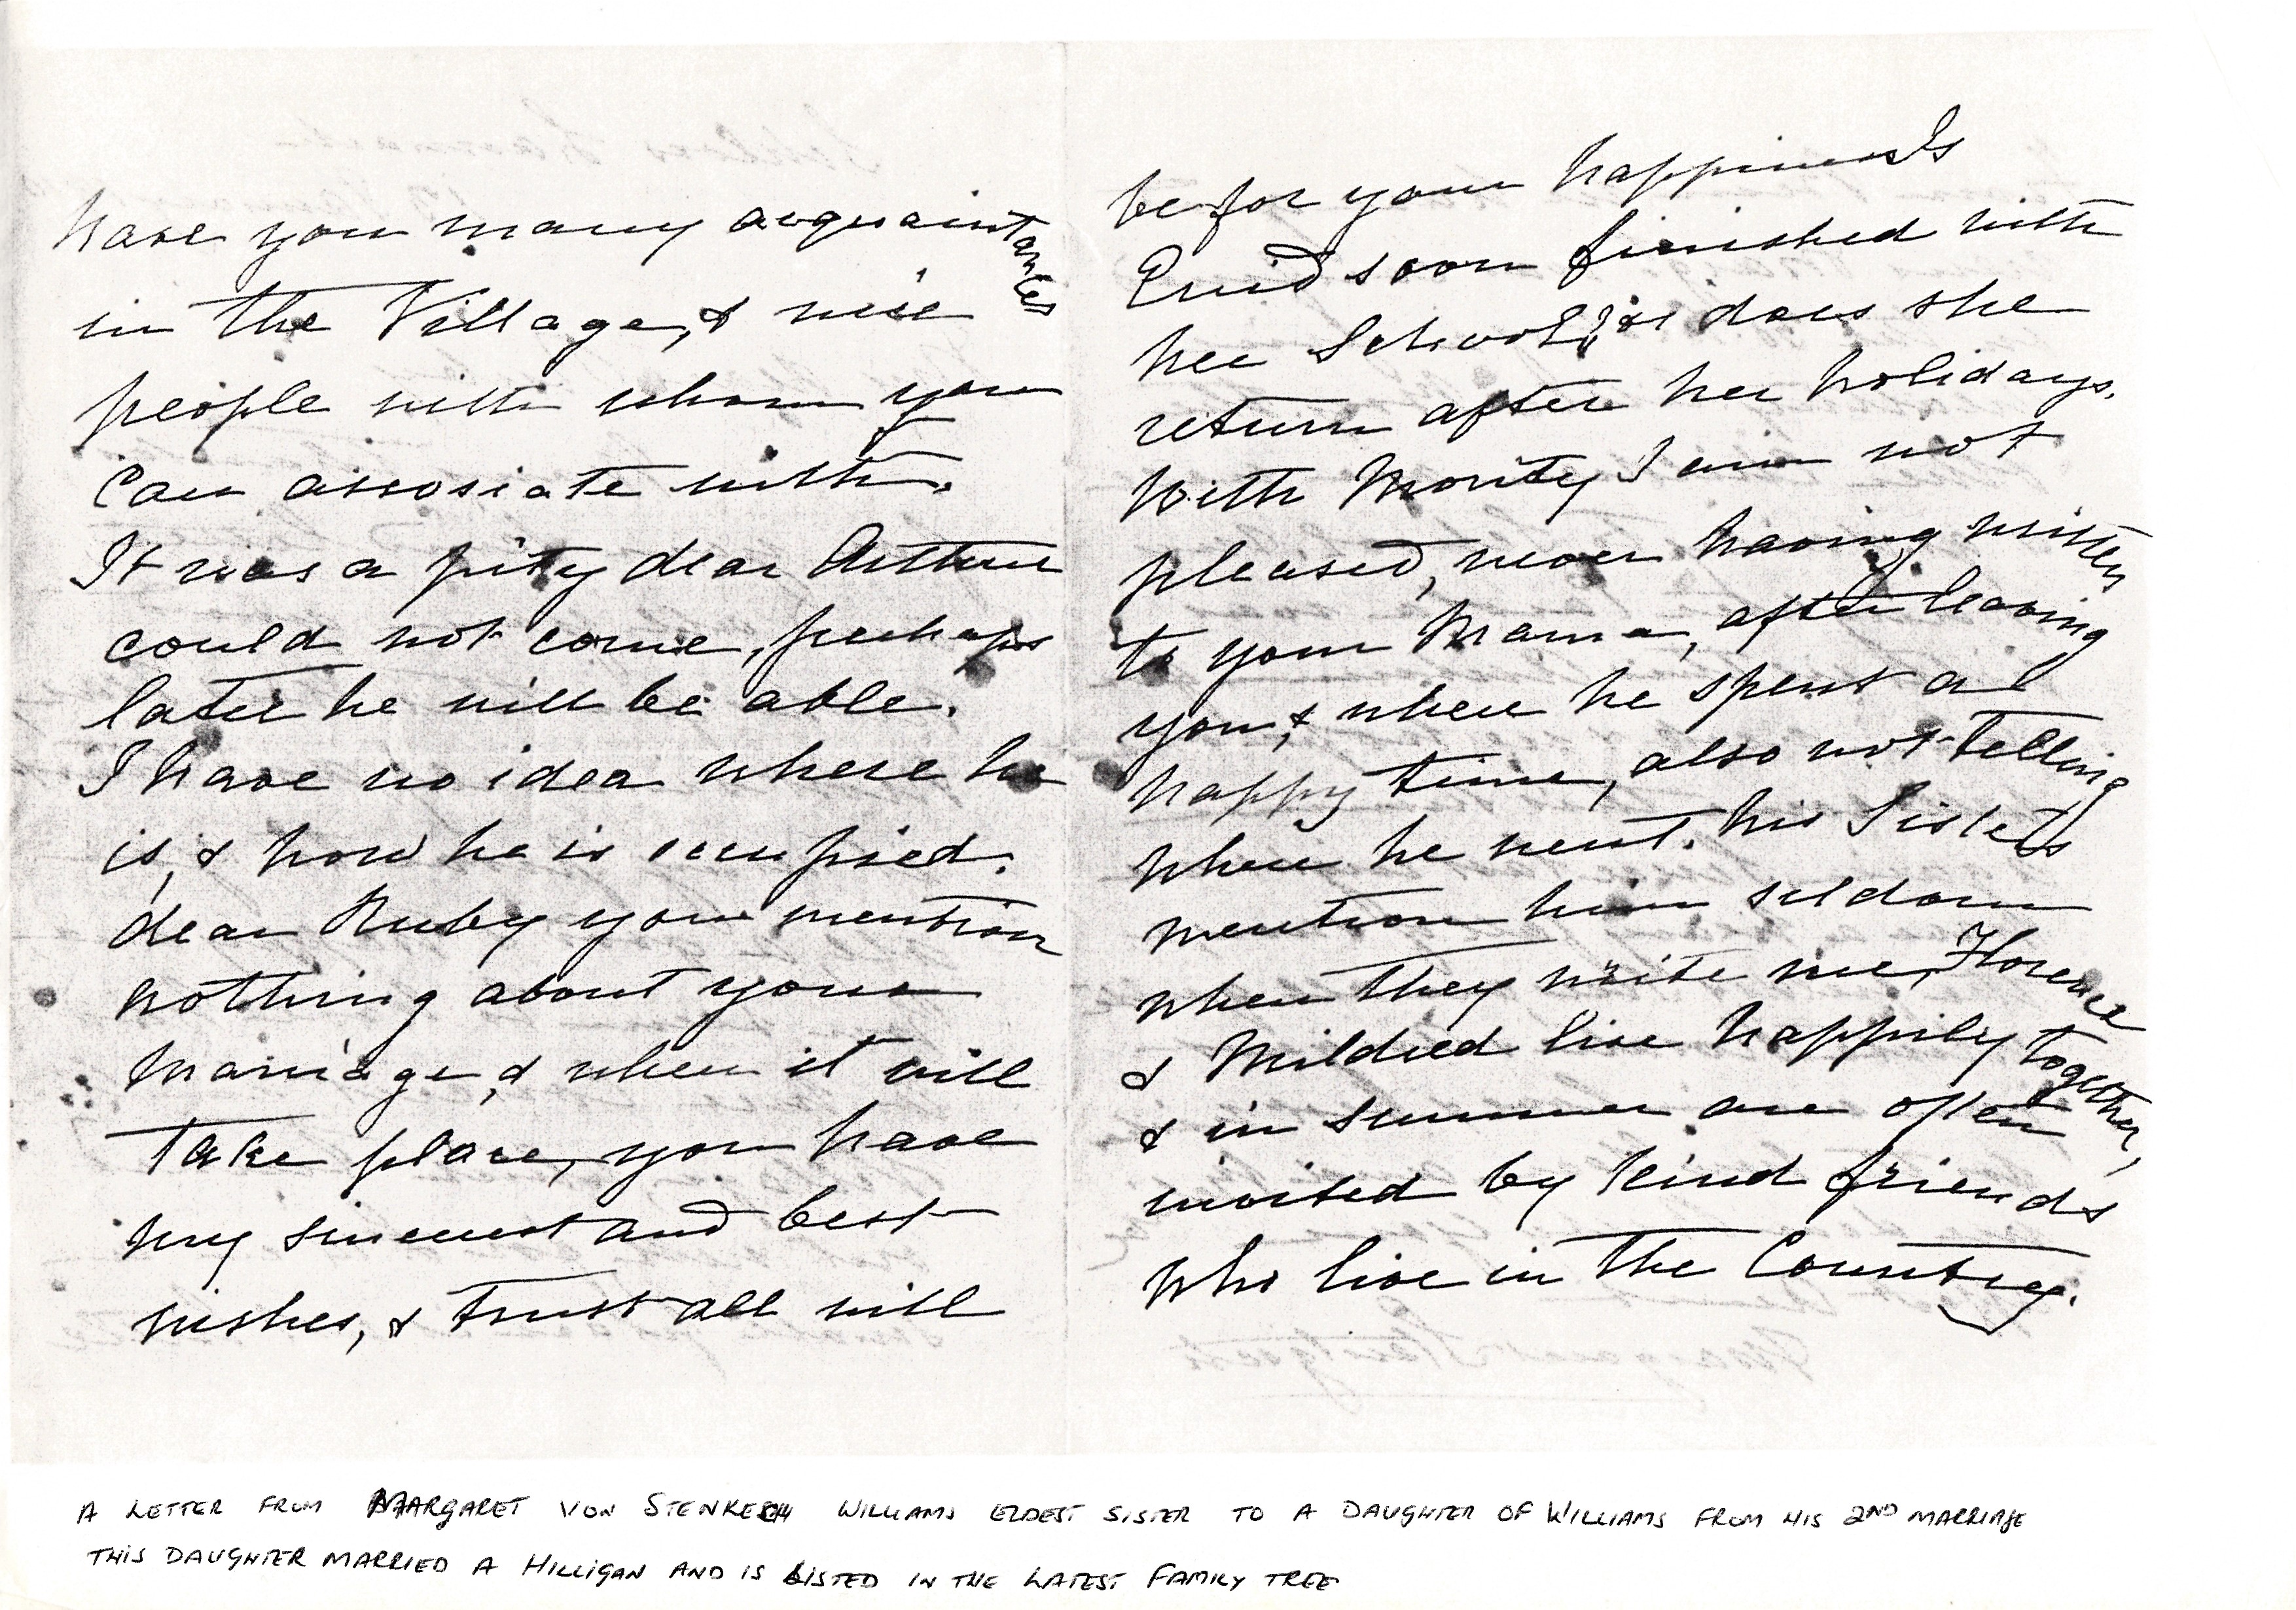 have you many acquaintances
in the Village, & nice
people with whom you
can assosiate with.
It was a pity dear Arthur
could not come, perhaps
later he will be able.
I have no idea where he
is, & how he is occupied.
dear Ruby you mention
nothing about your
marriage, & when it will
take place, you have
my sincerest and best
wishes, & trust all will
be for your happiness Is
Enid soon finished with
her School, or does she
return after her holidays.
With Monty I am not
pleased, never having written
to your Mama, after leaving
you, & where he spent a
happy time, also not telling
where he went. his Sisters
mention him seldom
when they write me, Florence
& Mildred live happily together,
& in summer are often
invited by kind friends
who live in the Country.
A LETTER FROM MARGARET VON WILLIAMS ELDEST SISTER TO A DAUGHTER OF WILLIAMS FROM HIS 2ND MARRIAGE
THIS DAUGHTER MARRIED A HILLIGAN AND IS LISTED IN THE LATEST FAMILY TREE